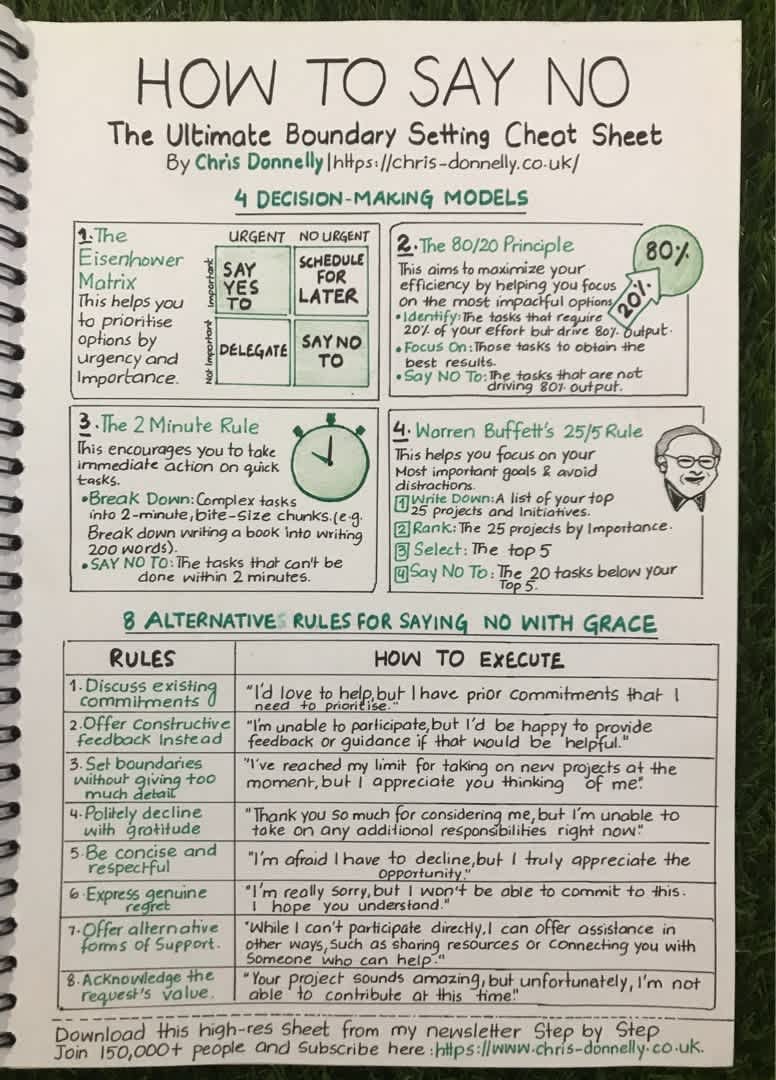 HOW TO SAY NO
The Ultimate Boundary Setting Cheat Sheet
By Chris Donnelly|https://chris-donnelly.co.uk/
4 DECISION-MAKING MODELS
1.The
Eisenhower
Matrix
This helps you
to prioritise
options by
urgency and
Importance.
URGENT NO URGENT
Important
SAY
YES
TO
SCHEDULE
FOR
LATER
Not Important
DELEGATE
SAY NO
TO
2.The 80/20 Principle
This aims to maximize your
efficiency by helping you focus
on the most impactful options
•Identify:The tasks that require
20% of your effort but drive 80% output.
•Focus On:Those tasks to obtain the
best results.
•Say NO To:The tasks that are not
driving 80% output.
80%
20%
3.The 2 Minute Rule
This encourages you to take
immediate action on quick
tasks.
•Break Down:Complex tasks
into 2-minute,bite-size chunks.(e.g.
Break down writing a book into writing
200 words).
•SAY NO TO:The tasks that can't be
done within 2 minutes.
4.Warren Buffett's 25/5 Rule
This helps you focus on your
Most important goals & avoid
distractions.
1 Write Down:A list of your top
25 projects and Initiatives.
2 Rank:The 25 projects by Importance.
3 Select: The top 5
4 Say No To: The 20 tasks below your
Top 5.
8 ALTERNATIVES RULES FOR SAYING NO WITH GRACE
RULES
HOW TO EXECUTE
1.Discuss existing
commitments
"I'd love to help,but I have prior commitments that I
need to prioritise."
2.Offer Constructive
feedback Instead
"I'm unable to participate,but I'd be happy to provide
feedback or guidance if that would be helpful."
3.Set boundaries
without giving too
much detail
"I've reached my limit for taking on new projects at the
moment,but I appreciate you thinking of me."
4.Politely decline
with gratitude
"Thank you so much for considering me,but I'm unable to
take on any additional responsibilities right now."
5.Be concise and
respectful
"I'm afraid I have to decline,but I truly appreciate the
opportunity."
6.Express genuine
regret
"I'm really sorry,but I won't be able to commit to this.
I hope you understand."
7.Offer alternative
forms of Support.
"While I can't participate directly,I can offer assistance in
other ways,such as sharing resources or connecting you with
Someone who can help."
8.Acknowledge the
request's value.
"Your project sounds amazing,but unfortunately,I'm not
able to contribute at this time."
Download this high-res sheet from my newsletter Step by Step
Join 150,000+ people and Subscribe here:https://www.chris-donnelly.co.uk.